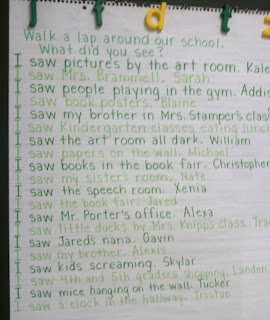 j f d t z
Walk a lap around our school.
What did you see?
I saw pictures by the art room. Kale
I saw Mrs. Brammell. Sarah
I saw people playing in the gym. Addis
I saw book posters. Blaine
I saw my brother in Mrs. Stamper's clas
I saw Kindergarten classes eating lunch
I saw the art room all dark. William
I saw papers on the wall. Michael
I saw books in the book fair. Christopher
I saw my sister's room. Nate
I saw the speech room. Xenia
I saw the book fair. Jared
I saw Mr. Porter's office. Alexa
I saw little ducks by Mrs. Knipp's class. Tra
I saw Jared's nana. Gavin
I saw my brother. Alexis
I saw kids screaming. Skylar
I saw 4th and 5th graders shopping. Landen
I saw mice hanging on the wall. Tucker
I saw a clock in the hallway. Tristan